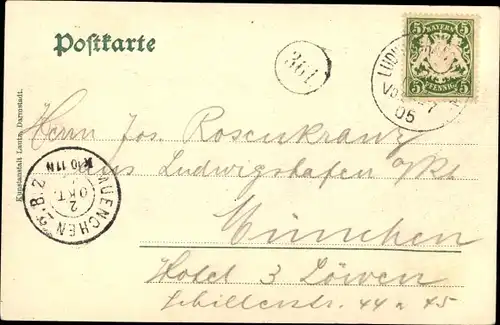 Postkarte
361
5 BAYERN 5
5 PFENNIG 5
LUDW
05
Herrn Jos Rosenkranz
aus Ludwigshafen a/Rh
München
Hotel 3 Löwen
Schillerstr. 44 u 45
MUENCHEN 2. B. 2
10 11 N
2
OKT.
Kunstanstalt Lautz, Darmstadt.